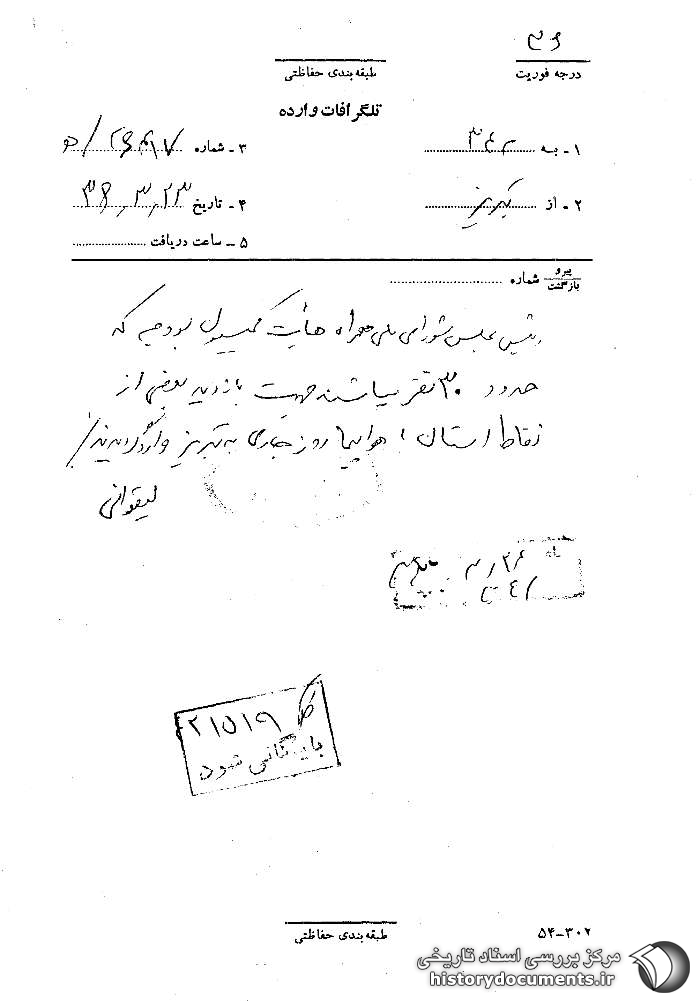 ۳۶
درجه فوریت
طبقه‌بندی حفاظتی
تلگرافات وارده
۱ - به ۳۴۲
۳ - شماره
۲ - از تبریز
۴ - تاریخ ۳۶,۳,۲۳
۵ - ساعت دریافت
پیرو
بازگشت
شماره
رئیس مجلس شورای ملی همراه هیأت کمیسیون بودجه که
حدود ۳۰ نفر میباشند جهت بازدید بعضی از
نقاط استان با هواپیما روز جاری به تبریز وارد گردیدند/
لیقوانی
۲۱۵۱۹
بایگانی شود
طبقه‌بندی حفاظتی
۵۴-۳۰۲
مرکز بررسی اسناد تاریخی
historydocuments.ir